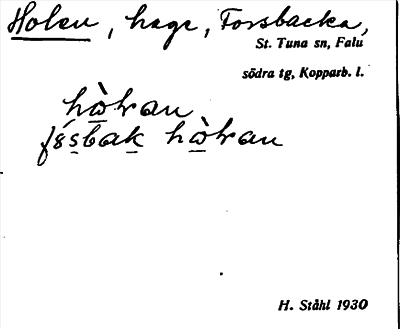 Holen, hage, Forsbacka,
St. Tuna sn, Falu
södra tg, Kopparb. l.
hòlran
fósbak hòlran
H. Ståhl 1930